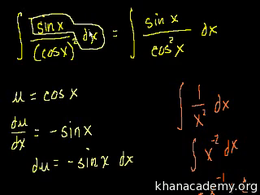 ∫ sin x / (cos x)² dx = ∫ sin x / cos² x dx
u = cos x
du/dx = -sin x
du = -sin x dx
∫ 1/x² dx
∫ x⁻² dx
khanacademy.org